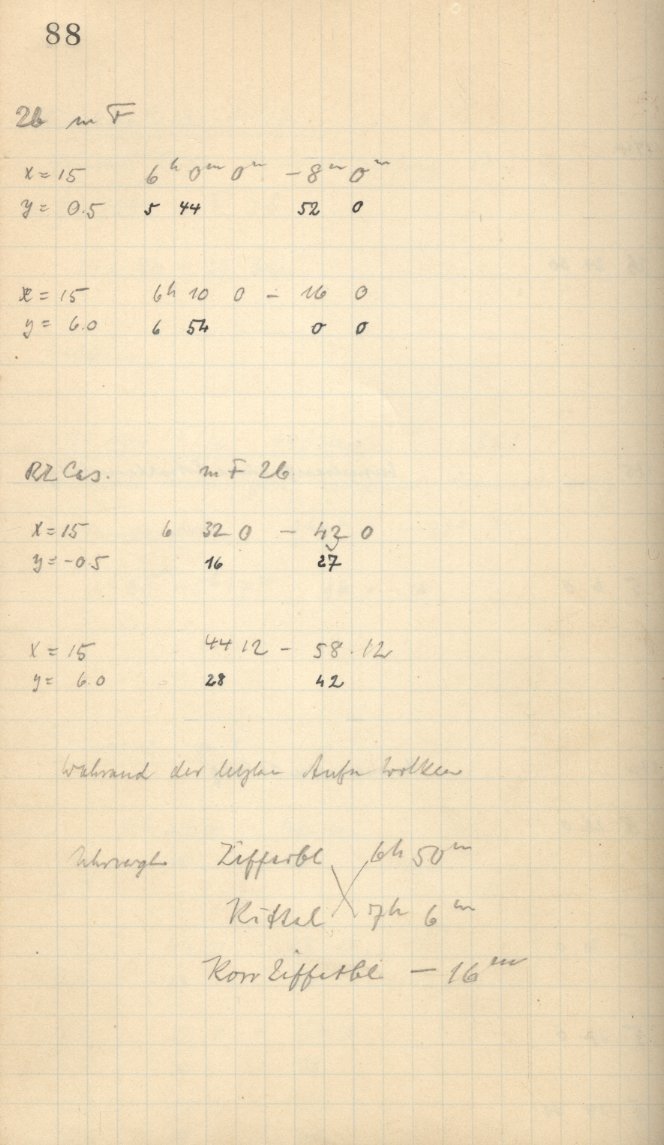 88
26 m F
x = 15 6h 0m 0m - 8m 0m
y = 0.5 5 44 52 0
x = 15 6h 10 0 - 16 0
y = 6.0 6 54 0 0
RZ Cas. m F 26
x = 15 6 32 0 - 43 0
y = -0.5 16 27
x = 15 44 12 - 58.12
y = 6.0 28 42
während der letzten Aufn Wolken
Uhrvergl Zifferbl 6h 50m
Kittel 7h 6m
Korr Zifferbl - 16m